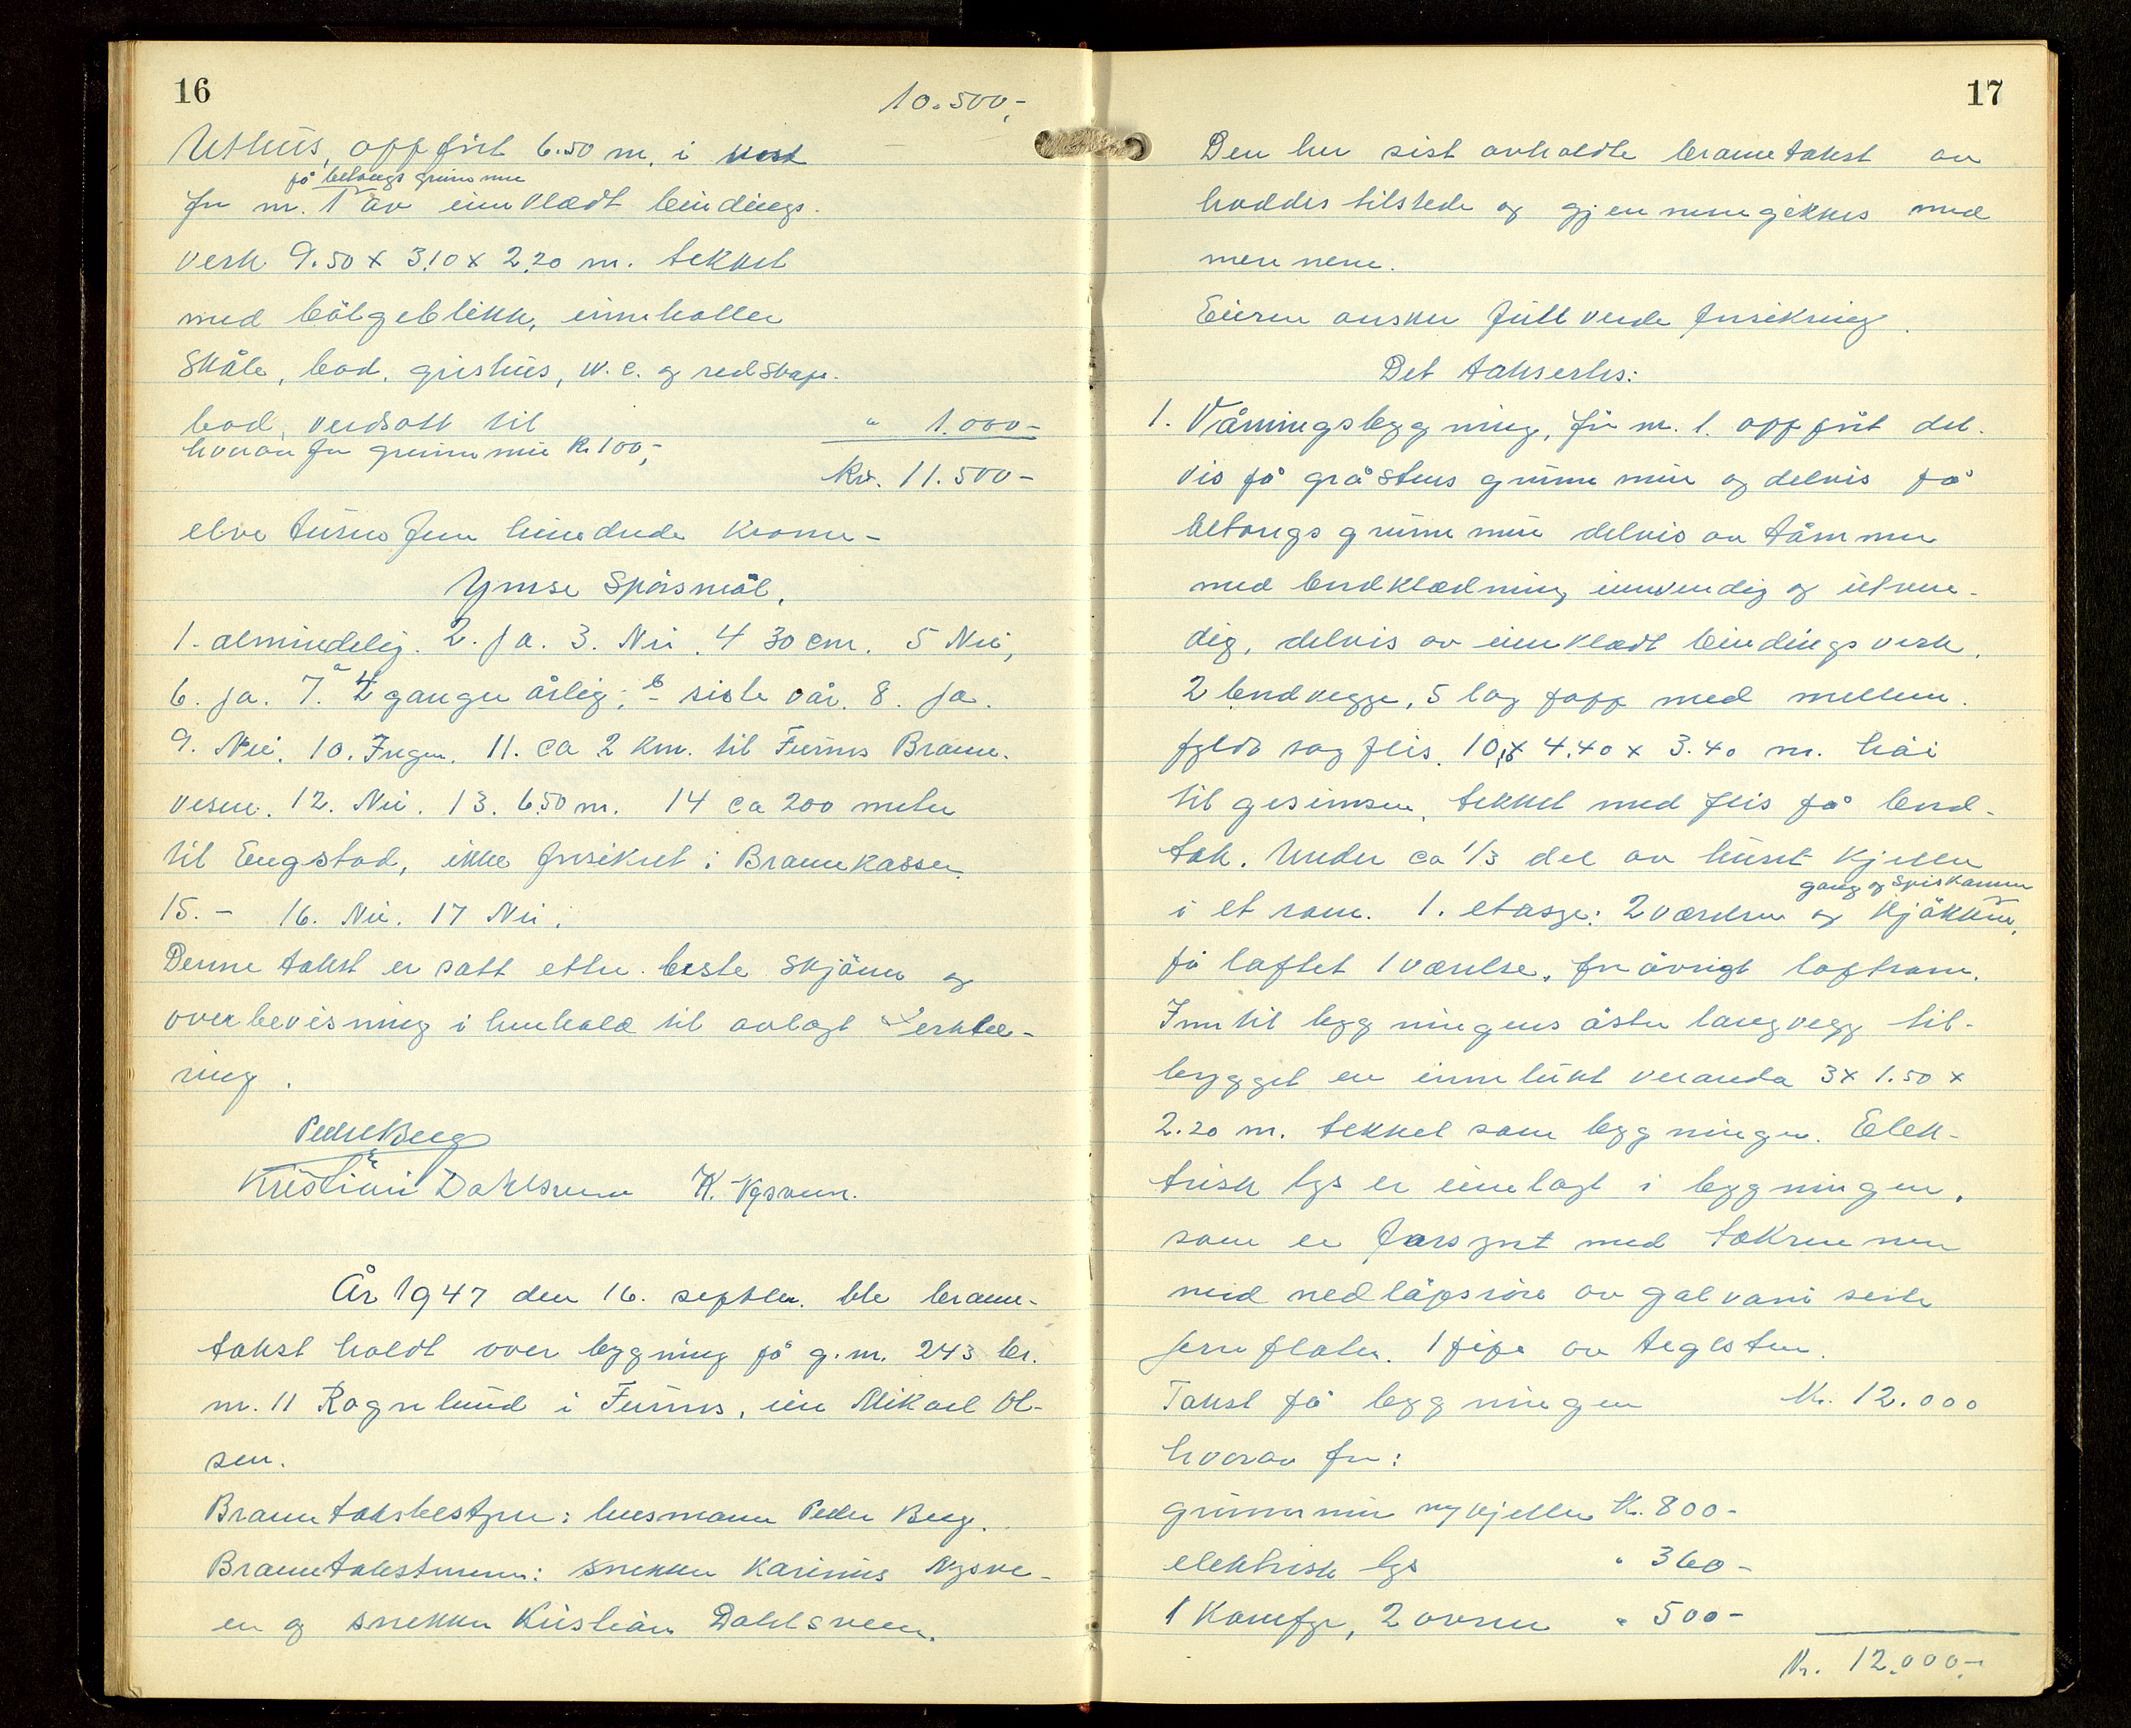 16
10.500,-
Uthus, oppført 6.50 m. i vest
på betongs grunnmur
for nr. 1 av innklædt bindings-
verk 9.50 x 3.10 x 2.20 m. tekket
med bölgeblikk, inneholler
Skåle, bod, grishus, W.C. og redskaps-
bod, verdsatt til " 1.000-
hvorav for grunnmur kr 100,-
Kr. 11.500-
elve tusen fem hundrede kroner-
Ymse Spörsmål.
1. almindelig. 2. Ja. 3. Nei. 4 30 cm. 5 Nei,
6. Ja. 7. a 2 ganger årlig; b siste vår. 8. Ja.
9. Nei. 10. Ingen. 11. ca 2 km. til Furnes Brann-
vesen. 12. Nei. 13. 6.50 m. 14 ca 200 meter
til Engstad, ikke forsikret i Brannkassen.
15. - 16. Nei. 17 Nei.
Denne takst er satt etter beste skjönn og
overbevisning i henhold til avlagt erklæ-
ring.
Peder Berg
Kristian Dahlsveen K. Nysveen.
År 1947 den 16. septbr. ble brann-
takst holdt over bygning på g.nr. 243 br.
nr. 11 Ragnslund i Furnes, eier Mikael Ol-
sen.
Branntakstbestyrer: husmann Peder Berg.
Branntakstmenn: snekker Karinus Nysve-
en og snekker Kristian Dahlsveen.
17
Den her sist avholdte branntakst av
havdes tilstede og gjennemgikkes med
mennene.
Eieren ønsker full verde forsikring.
Det taksertes:
1. Våningsbygning, for nr. 1. oppført del-
vis på gråstens grunnmur og delvis på
betongs grunnmur delvis av tömmer
med bordklædning innvendig og utven-
dig, delvis av innklædt bindingsverk.
2 bordvegge, 5 lag papp med mellem-
fyldt sagflis. 10,10 x 4.40 x 3.40 m. höi
til gesimsen, tekket med flis på bord-
tak. Under ca 1/3 del av huset kjeller
gang og spiskammer
i et rom. 1. etasge: 2 værelser og kjökken,
på loftet 1 værelse, for övrigt loftsrom.
Inntil bygningens östre langvegg til-
bygget en innelukt veranda 3 x 1.50 x
2.20 m. tekket som bygningen. Elek-
trisk lys er innelagt i bygningen,
som er forsynt med takrenner
med nedlöpsrör av galvaniserte
jernplater. 1 pipe av teglsten.
Takst på bygningen Kr. 12.000
hvorav for:
grunnmur og kjeller Kr. 800-
elektrisk lys " 360-
1 Komfyr, 2 ovner " 500-
Kr. 12.000.-